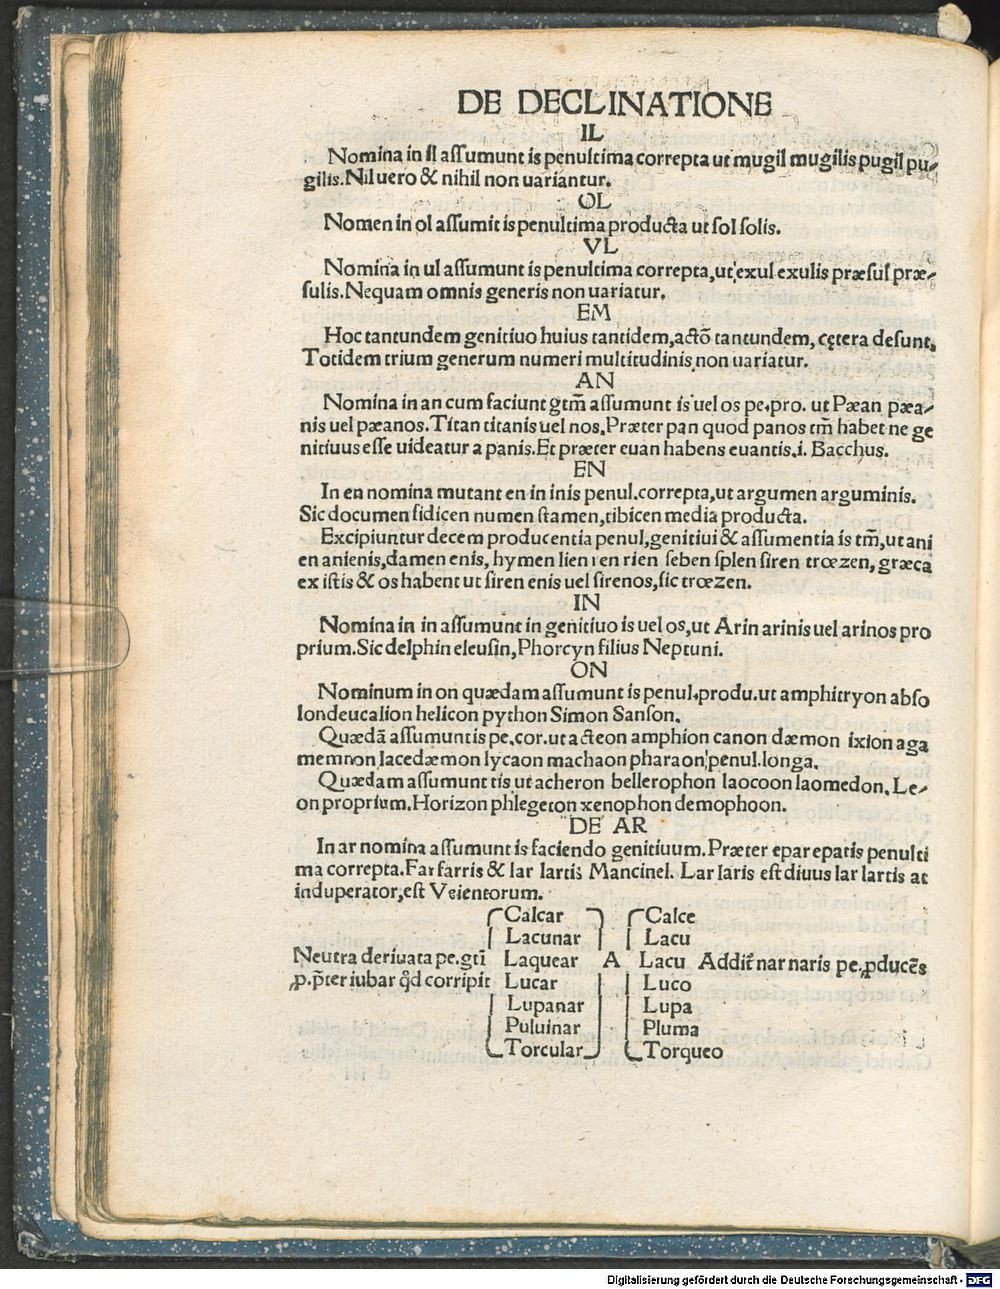 DE DECLINATIONE
IL
Nomina in il assumunt is penultima correpta ut mugil mugilis pugil pu-
gilis. Nil uero & nihil non uariantur.
OL
Nomen in ol assumit is penultima producta ut sol solis.
VL
Nomina in ul assumunt is penultima correpta, ut exul exulis præsul præ-
sulis. Nequam omnis generis non uariatur.
EM
Hoc tantundem genitiuo huius tantidem, actõ tantundem, cętera desunt.
Totidem trium generum numeri multitudinis non uariatur.
AN
Nomina in an cum faciunt gtm̃ assumunt is uel os pe. pro. ut Pæan pæa-
nis uel pæanos. Titan titanis uel nos. Præter pan quod panos tm̃ habet ne ge
nitiuus esse uideatur a panis. Et præter euan habens euantis .i. Bacchus.
EN
In en nomina mutant en in inis penul. correpta, ut argumen arguminis.
Sic documen fidicen numen stamen, tibicen media producta.
Excipiuntur decem producentia penul, genitiui & assumentia is tm̃, ut ani
en anienis, damen enis, hymen lien ren rien seben splen siren trœzen, græca
ex istis & os habent ut siren enis uel sirenos, sic trœzen.
IN
Nomina in in assumunt in genitiuo is uel os, ut Arin arinis uel arinos pro
prium. Sic delphin eleusin, Phorcyn filius Neptuni.
ON
Nominum in on quædam assumunt is penul. produ. ut amphitryon abso
lon deucalion helicon python Simon Sanson.
Quædã assumunt is pe. cor. ut acteon amphion canon dæmon ixion aga
memnon lacedæmon lycaon machaon pharaon penul. longa.
Quædam assumunt tis ut acheron bellerophon laocoon laomedon. Le-
on proprium. Horizon phlegeton xenophon demophoon.
DE AR
In ar nomina assumunt is faciendo genitiuum. Præter epar epatis penulti
ma correpta. Far farris & lar lartis Mancinel. Lar laris est diuus lar lartis at
induperator, est Veientorum.
Calcar Calce
Lacunar Lacu
Neutra deriuata pe. gti Laquear A Lacu Addit̃ nar naris pe. ꝓducẽs
ꝓ. p̃ter iubar qd̃ corripit Lucar Luco
Lupanar Lupa
Puluinar Pluma
Torcular Torqueo
Digitalisierung gefördert durch die Deutsche Forschungsgemeinschaft - DFG